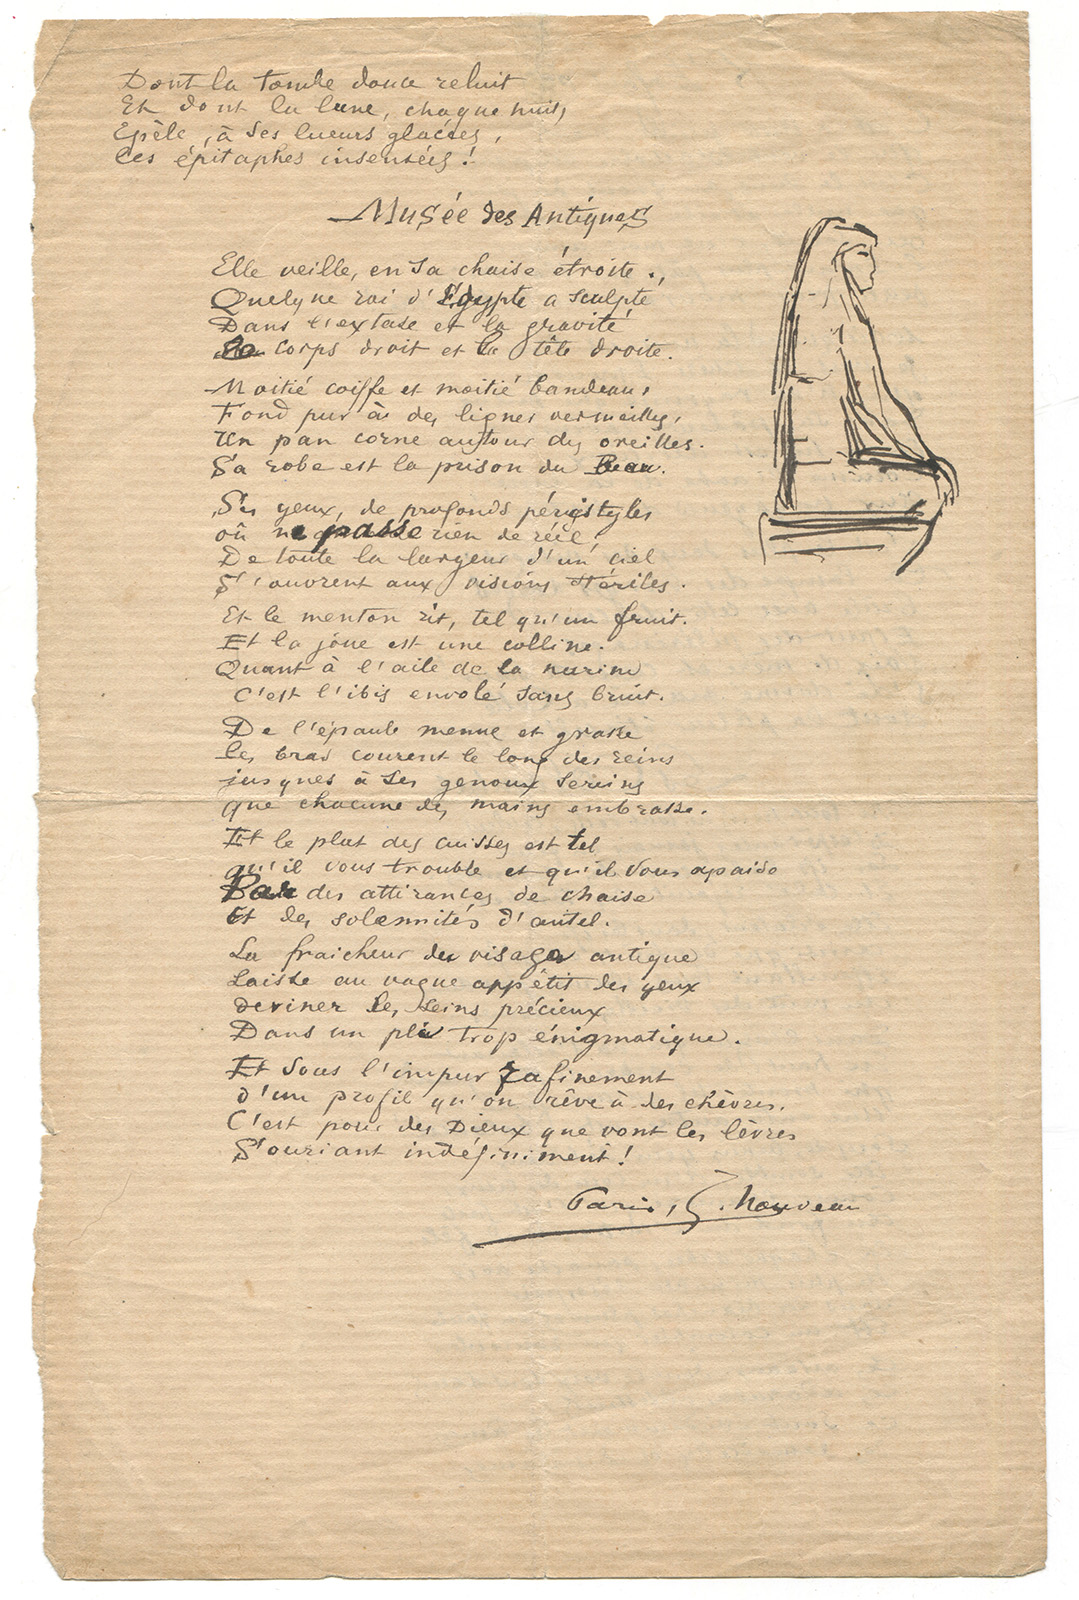 Dont la tombe douce reluit
Et dont la lune, chaque nuit,
Epèle, à ses lueurs glacées,
Les épitaphes insensées !
Musée des Antiques
Elle veille, en sa chaise étroite.,
Quelque roi d'Égypte a sculpté
Dans l'extase et la gravité
Le corps droit et la tête droite.
Moitié coiffe et moitié bandeau,
Fond pur à des lignes vermeilles,
Un pan corne autour des oreilles.
Sa robe est la prison du Beau.
Ses yeux, de profonds péristyles
où ne passe rien de réel,
De toute la largeur d'un ciel
S'ouvrent aux visions stériles.
Et le menton rit, tel qu'un fruit.
Et la joue est une colline.
Quant à l'aile de la narine
C'est l'ibis envolé sans bruit.
De l'épaule menue et grasse
les bras courent le long des reins
jusques à ses genoux sereins
que chacune des mains embrasse.
Et le plat des cuisses est tel
qu'il vous trouble et qu'il vous apaise
Par des attirances de chaise
Et des solennités d'autel.
La fraicheur du visage antique
Laisse au vague appétit des yeux
deviner les seins précieux
Dans un pli trop énigmatique.
Et sous l'impur rafinement
d'un profil qu'on rêve à des chèvres,
C'est pour des Dieux que vont les lèvres
S'ouriant indéfiniment !
Paris, G. Nouveau